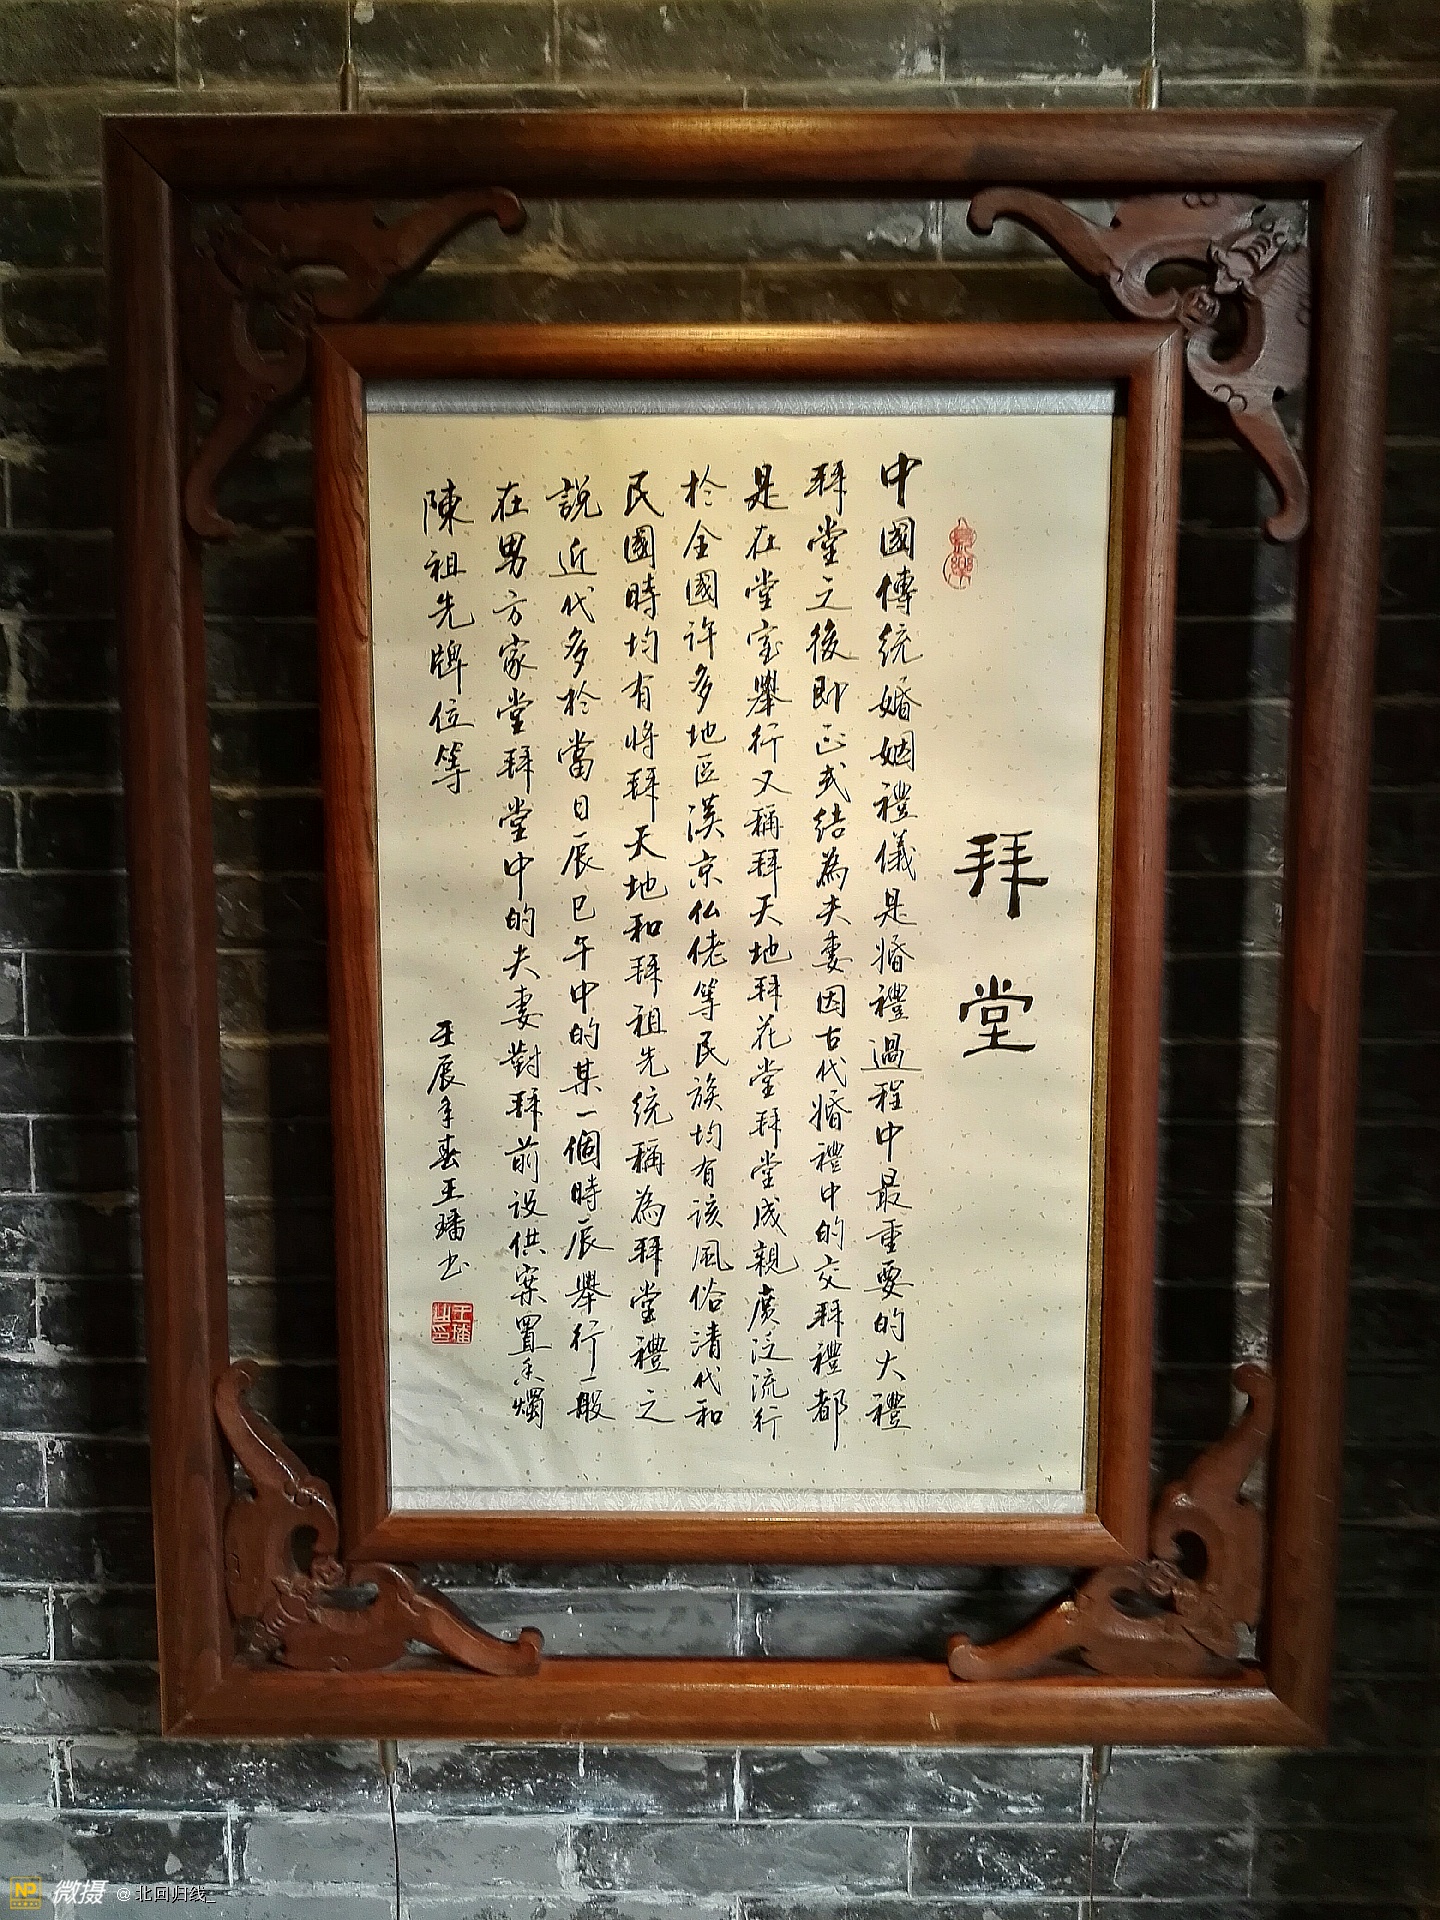 拜堂
中國傳統婚姻禮儀是婚禮過程中最重要的大禮
拜堂之後即正式結為夫妻因古代婚禮中的交拜禮都
是在堂室舉行又稱拜天地拜花堂拜堂成親廣泛流行
於全國許多地區漢京仫佬等民族均有該風俗清代和
民國時均有將拜天地和拜祖先統稱為拜堂禮之
說近代多於當日辰巳午中的某一個時辰舉行一般
在男方家堂拜堂中的夫妻對拜前设供案置香燭
陳祖先牌位等
壬辰年春王璠书
微摄 @北回归线_